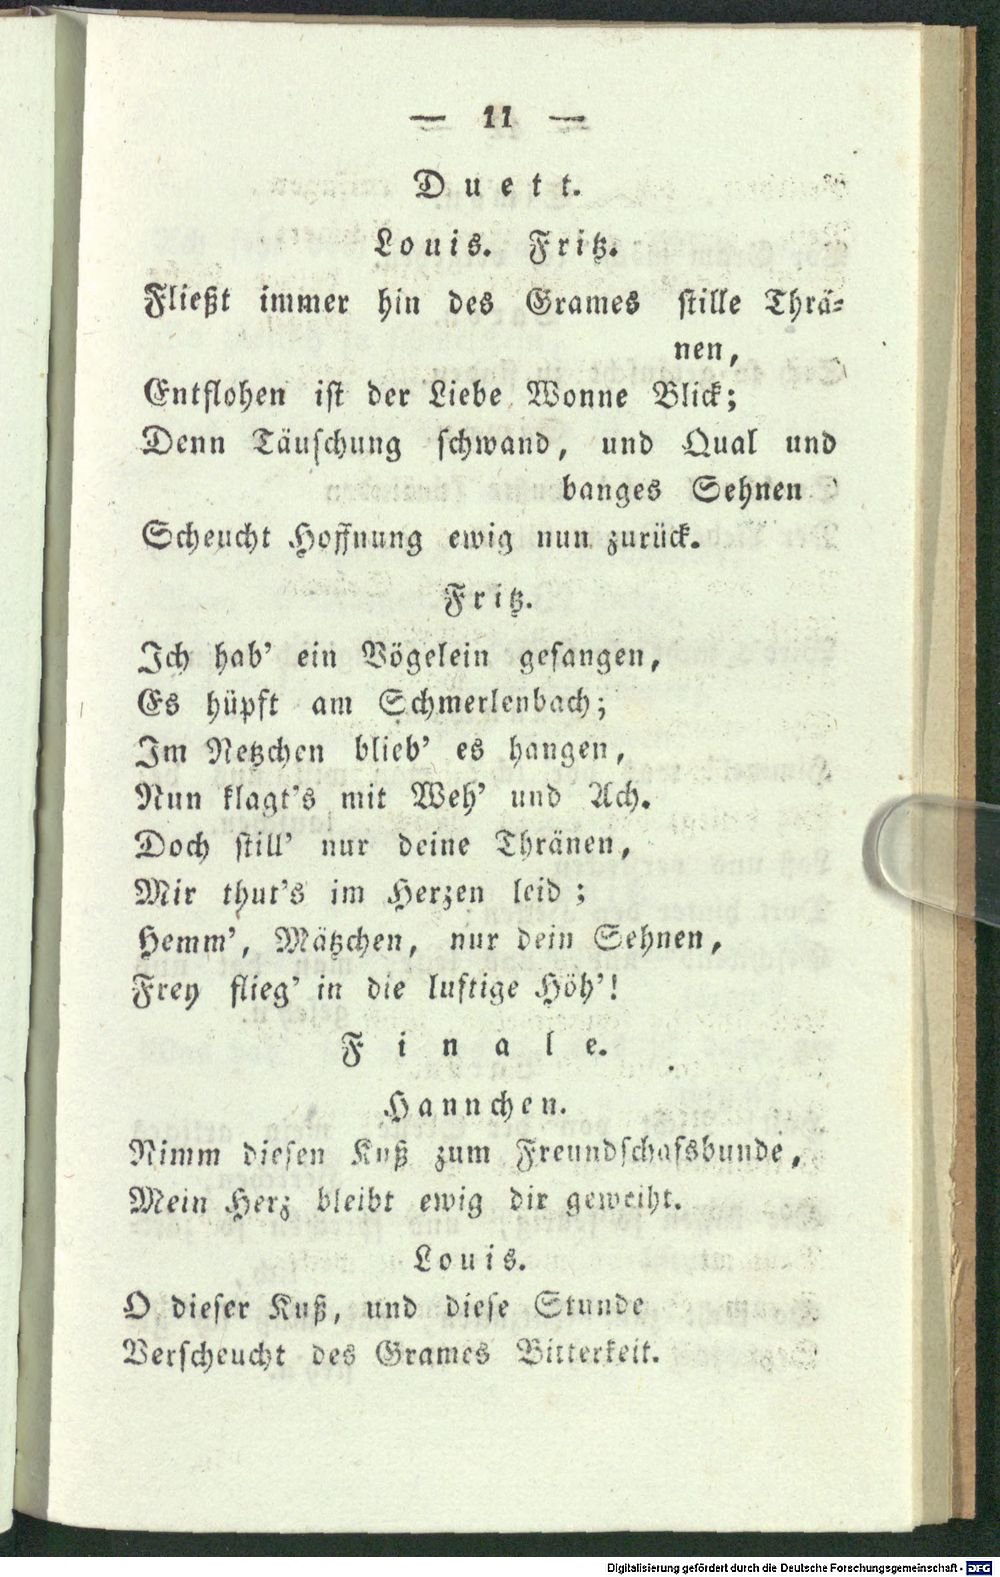 — 11 —
Duett.
Louis. Fritz.
Fließt immer hin des Grames stille Thrä-
nen,
Entflohen ist der Liebe Wonne Blick;
Denn Täuschung schwand, und Qual und
banges Sehnen
Scheucht Hoffnung ewig nun zurück.
Fritz.
Ich hab' ein Vögelein gefangen,
Es hüpft am Schmerlenbach;
Im Netzchen blieb' es hangen,
Nun klagt's mit Weh' und Ach.
Doch still' nur deine Thränen,
Mir thut's im Herzen leid;
Hemm', Mätzchen, nur dein Sehnen,
Frey flieg' in die luftige Höh'!
Finale.
Hannchen.
Nimm diesen Kuß zum Freundschafsbunde,
Mein Herz bleibt ewig dir geweiht.
Louis.
O dieser Kuß, und diese Stunde
Verscheucht des Grames Bitterkeit.
Digitalisierung gefördert durch die Deutsche Forschungsgemeinschaft - DFG